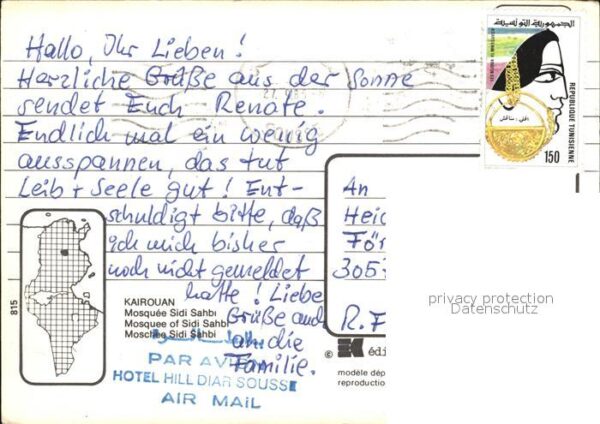 Hallo, Ihr Lieben!
Herzliche Grüße aus der Sonne
sendet Euch Renate.
Endlich mal ein wenig
ausspannen, das tut
Leib + Seele gut! Ent-
schuldigt bitte, daß
ich mich bisher
noch nicht gemeldet
hatte! Liebe
Grüße auch
an die
Familie.
الجمهورية التونسية
REPUBLIQUE TUNISIENNE
150
An
Heid
För
305
R.F
privacy protection
Datenschutz
815
KAIROUAN
Mosquée Sidi Sahbi
Mosquee of Sidi Sahbi
Moschee Sidi Sahbi
PAR AVION
HOTEL HILL DIAR SOUSSE
AIR MAIL
©
édi
modèle dép
reproductio